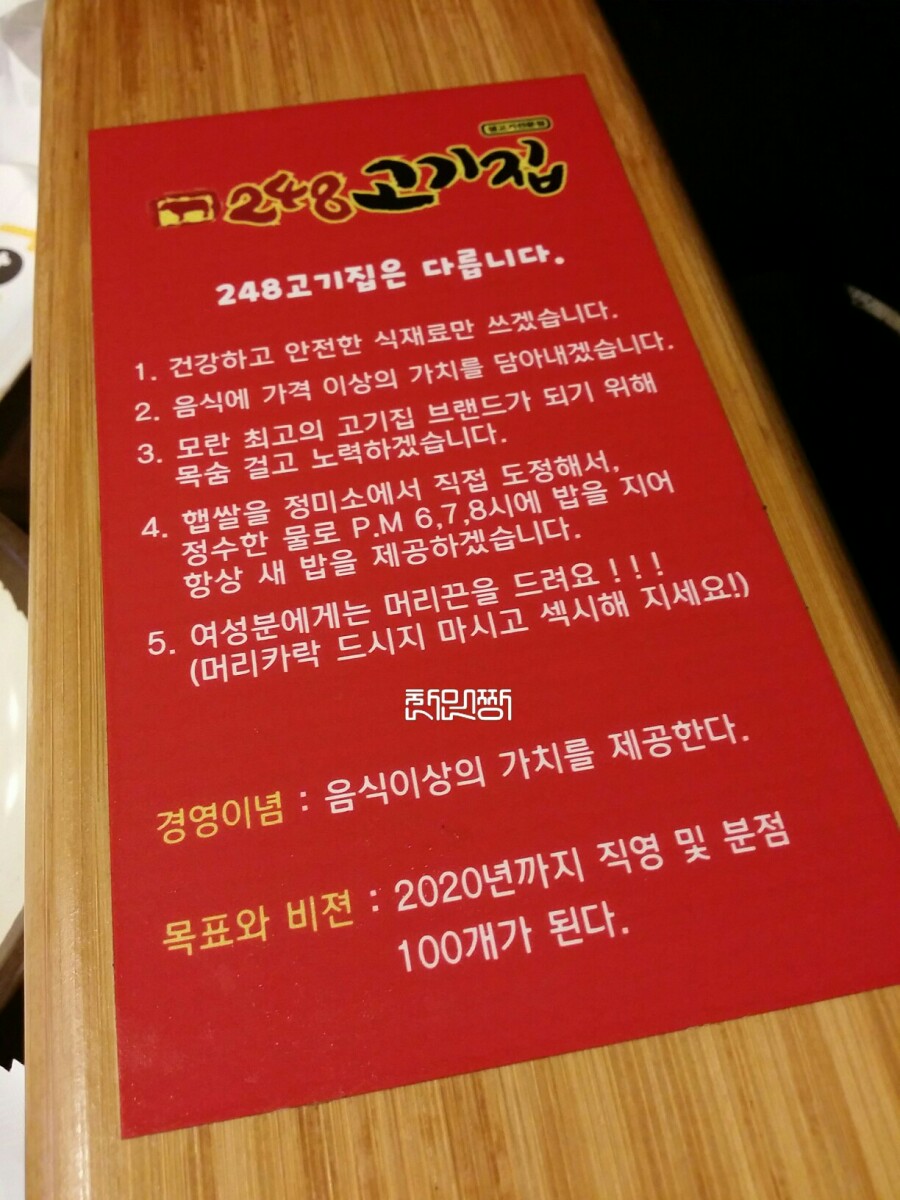 248고기집
248고기집은 다릅니다.
1. 건강하고 안전한 식재료만 쓰겠습니다.
2. 음식에 가격 이상의 가치를 담아내겠습니다.
3. 모란 최고의 고기집 브랜드가 되기 위해
목숨 걸고 노력하겠습니다.
4. 햅쌀을 정미소에서 직접 도정해서,
정수한 물로 P.M 6,7,8시에 밥을 지어
항상 새 밥을 제공하겠습니다.
5. 여성분에게는 머리끈을 드려요 ! ! !
(머리카락 드시지 마시고 섹시해 지세요!)
경영이념 : 음식이상의 가치를 제공한다.
목표와 비젼 : 2020년까지 직영 및 분점
100개가 된다.